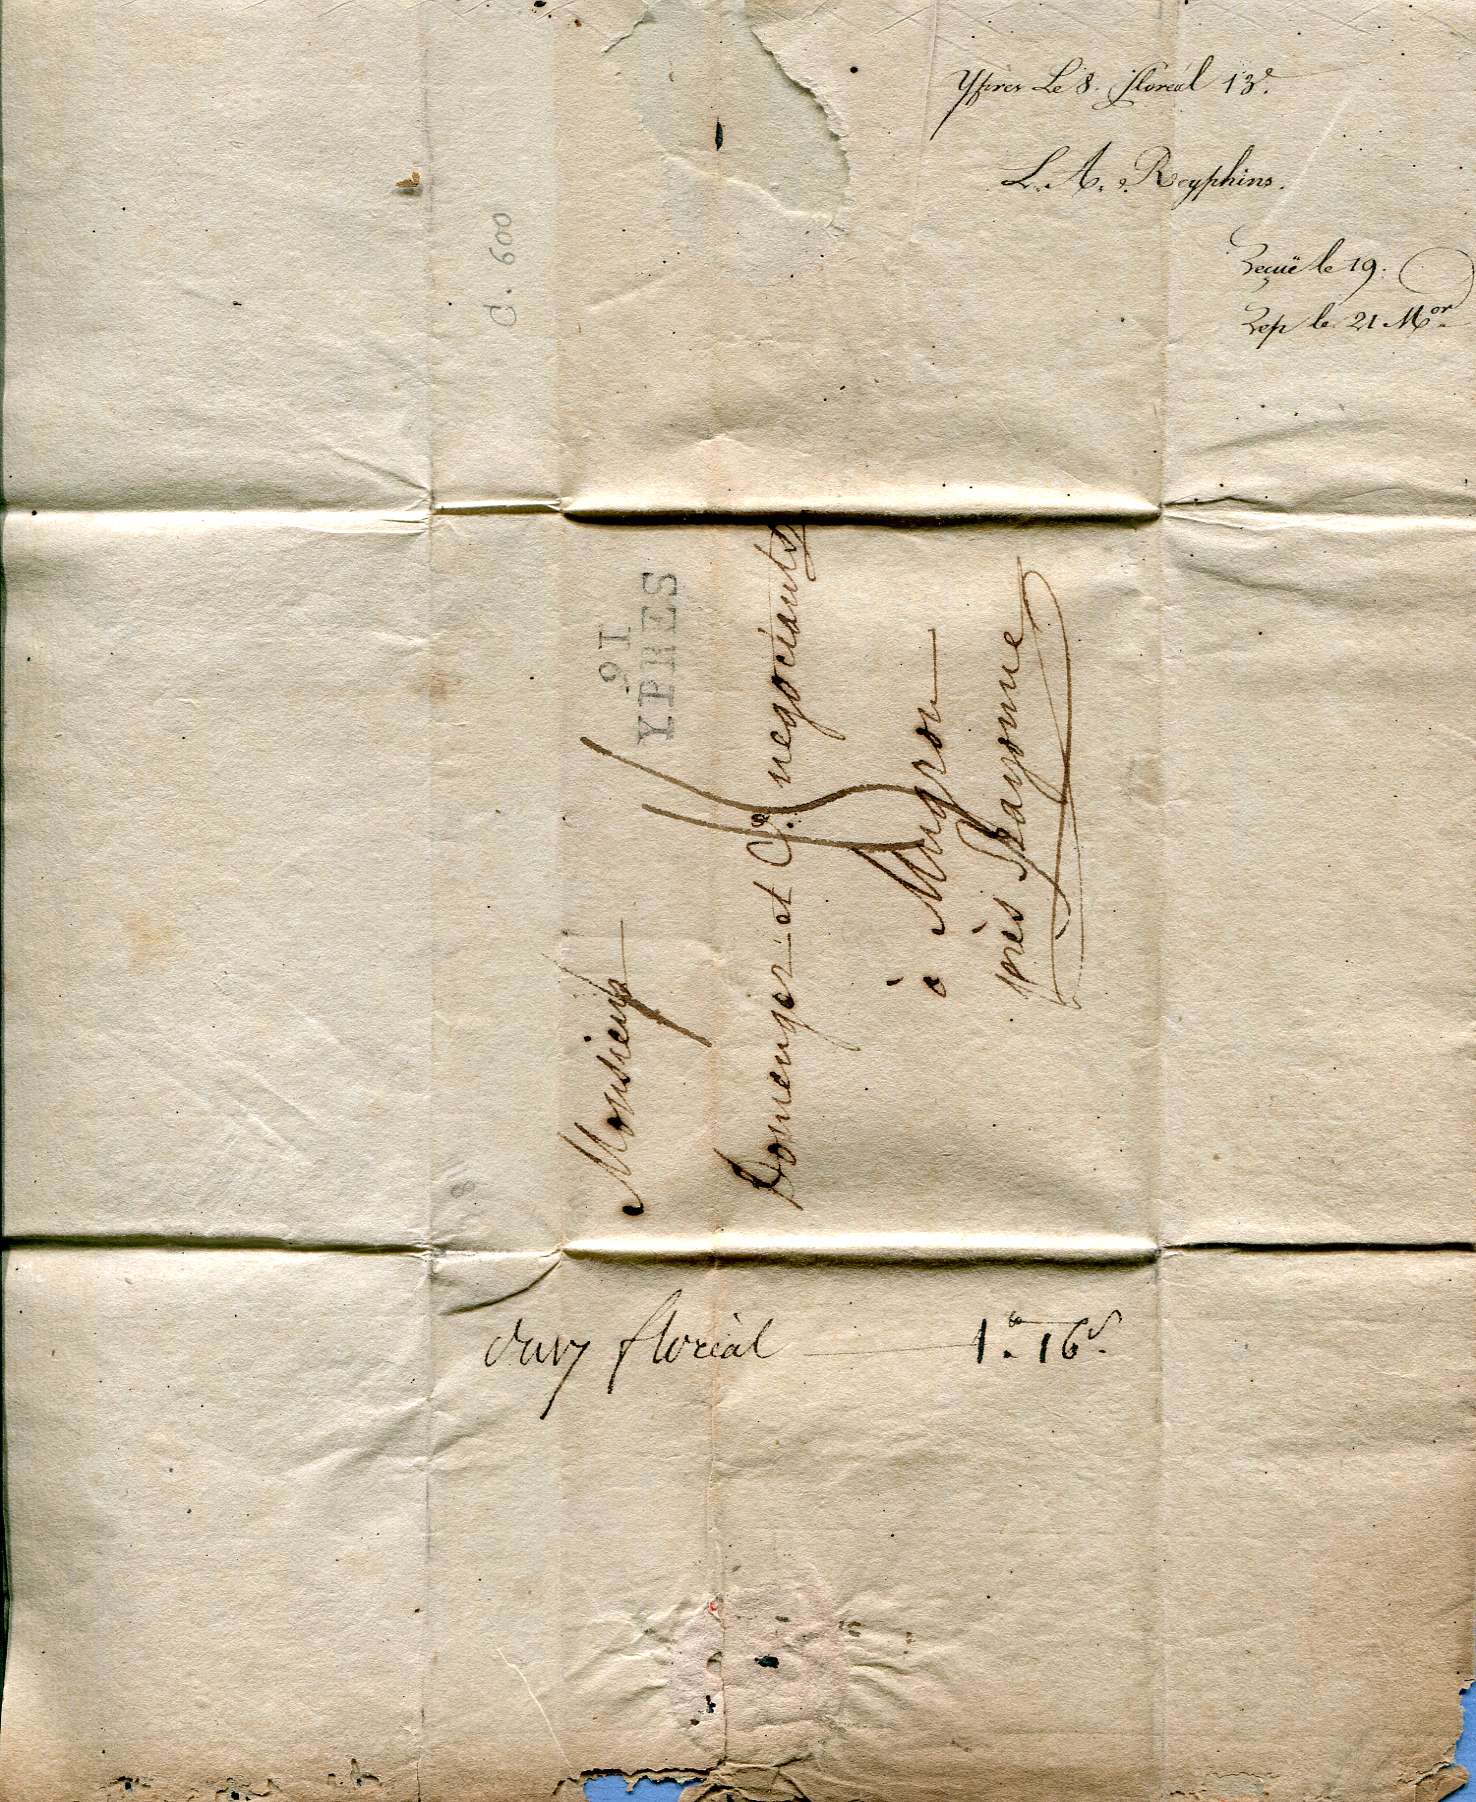 Ypres Le 8. floréal 13e.
L. A. Reyphins.
Reçüe le 19.
Rep le 21 M.or
d. 600
91
YPRES
Monsieur
Domenger et Ce. negociants
à Mugron
près Bayonne
8
floréal 1# 16s.